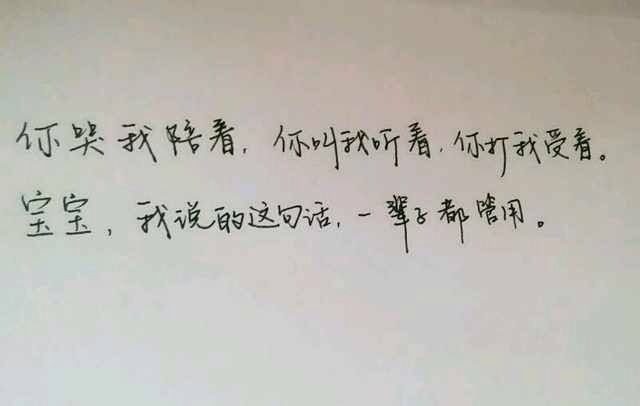 你哭我陪着，你叫我听着，你打我受着。
宝宝，我说的这句话，一辈子都管用。